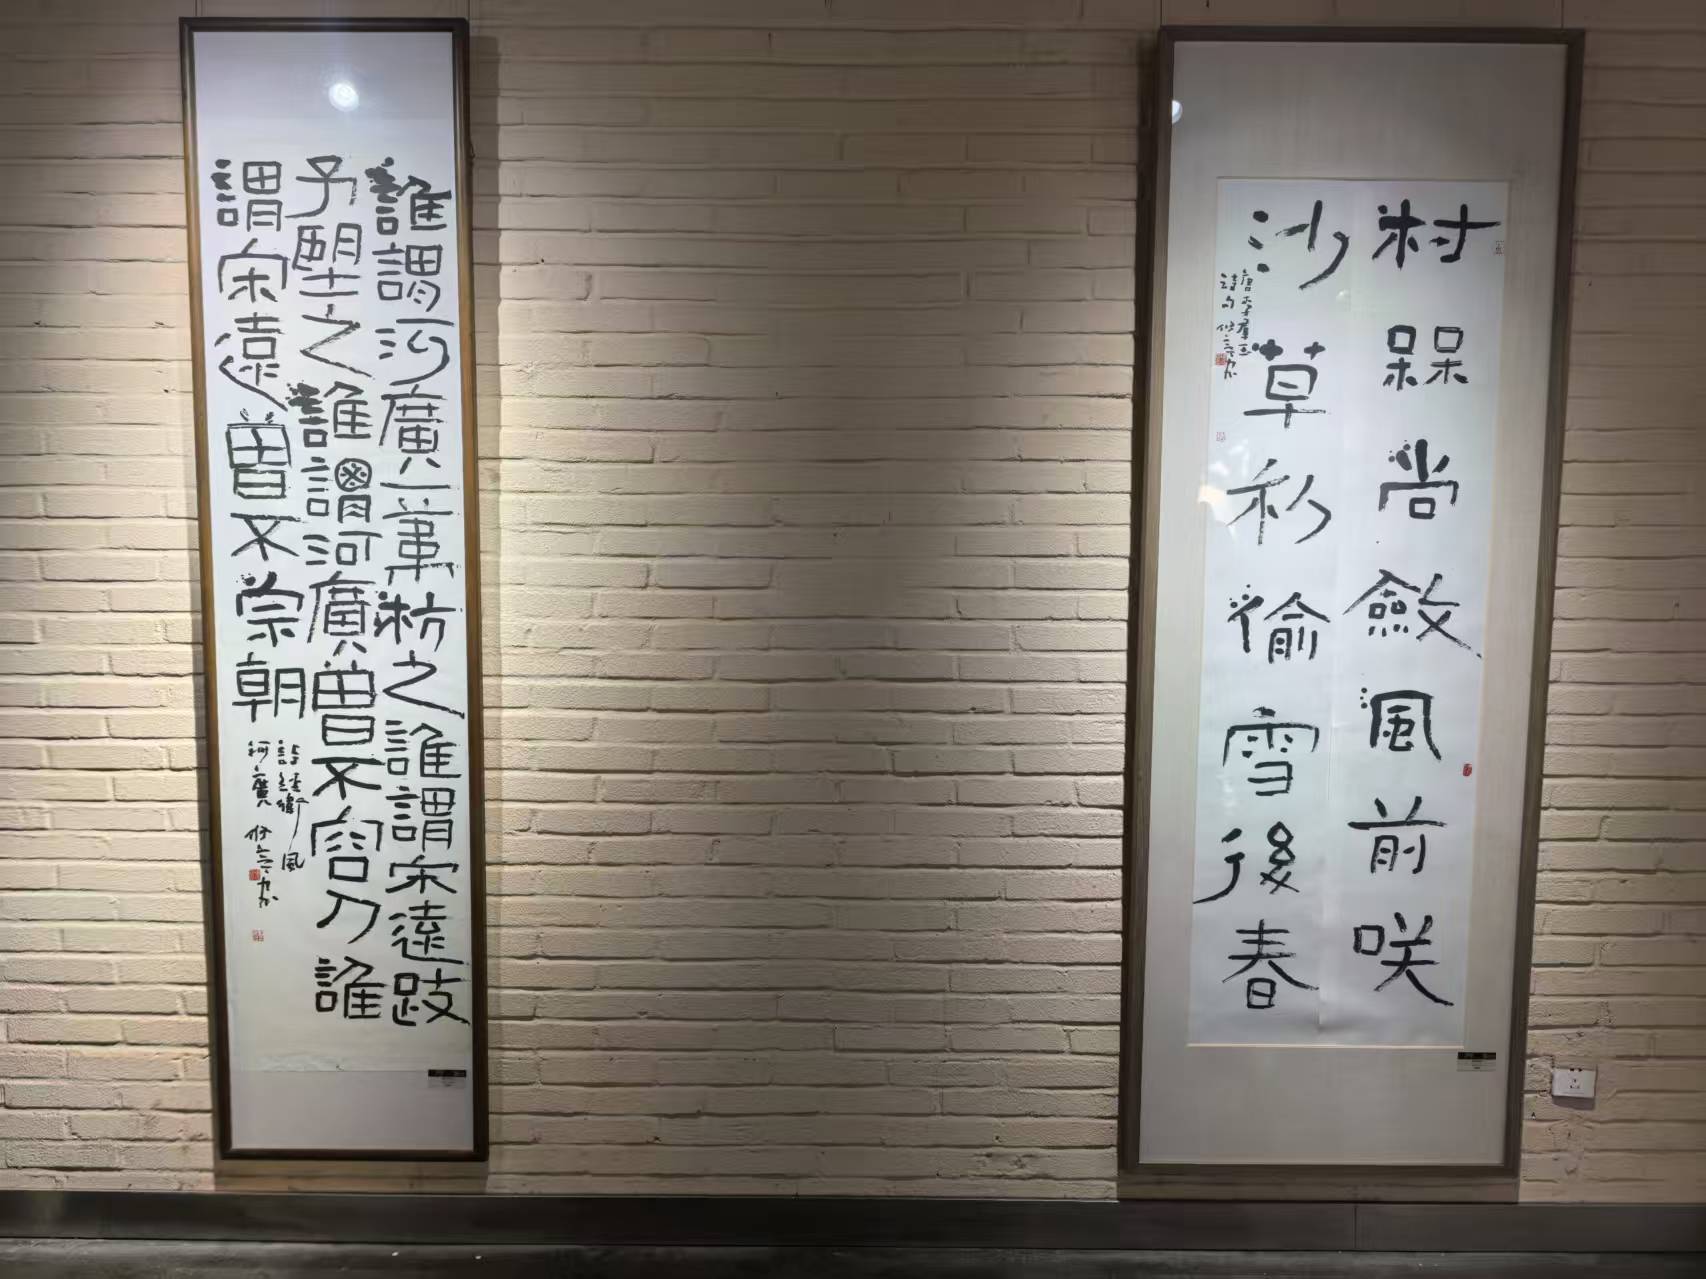 村槑尚斂風前咲
沙草初偷雪後春
唐李羣玉
詩句
誰謂河廣一葦杭之誰謂宋遠跂
予朢之誰謂河廣曾不容刀誰
謂宋遠曾不崇朝
詩經衛風
河廣